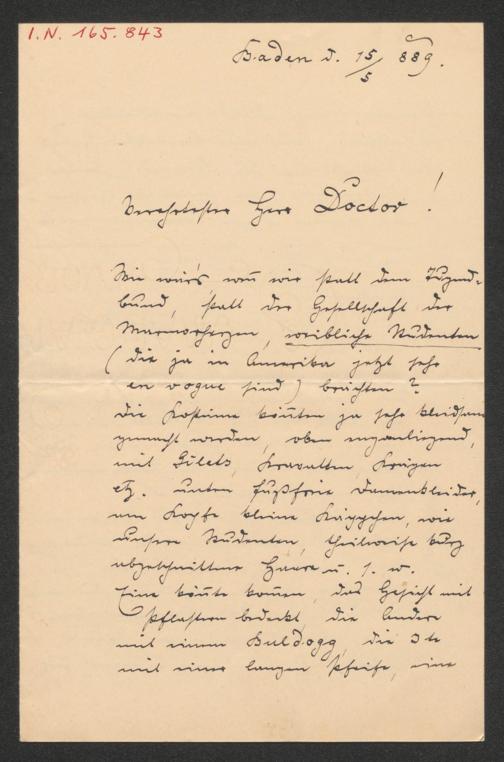 I.N. 165.843
Baden d. 15/5 889.
Verehrtester Herr Doctor!
Wie wär's, wen̄ wir statt dem Tugend-
bund, statt der Gesellschaft der
Marmorherzen, weibliche Studenten
(die ja in Amerika jetzt sehr
en vogue sind) brächten?
Die Kostüme kön̄ten ja sehr kleidsam
gemacht werden, oben enganliegend,
mit Gilets, Kravatten, Krägen
etz. unten fußfreie Damenkleider,
am Kopfe kleine Käppchen, wie
unsere Studenten, theilweise kurz
abgeschnittene Haare u. s. w.
Eine kön̄te kom̄en, das Gesicht mit
Pflastern bedeckt, die Andere
mit einem Buldogg, die 3te
mit einer langen Pfeife, eine